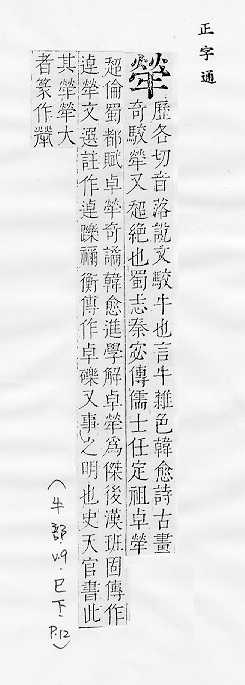 正字通
犖
歷各切音落說文駁牛也言牛雜色韓愈詩古畫
奇駮犖又超絕也蜀志秦宓傳儒士任定祖卓犖
超倫蜀都賦卓犖奇譎韓愈進學解卓犖為傑後漢班固傳作
逴犖文選註作逴躒禰衡傳作卓礫又事之明也史天官書此
其犖犖大
者篆作犖
(牛部 V.9. 巳下 P.12)